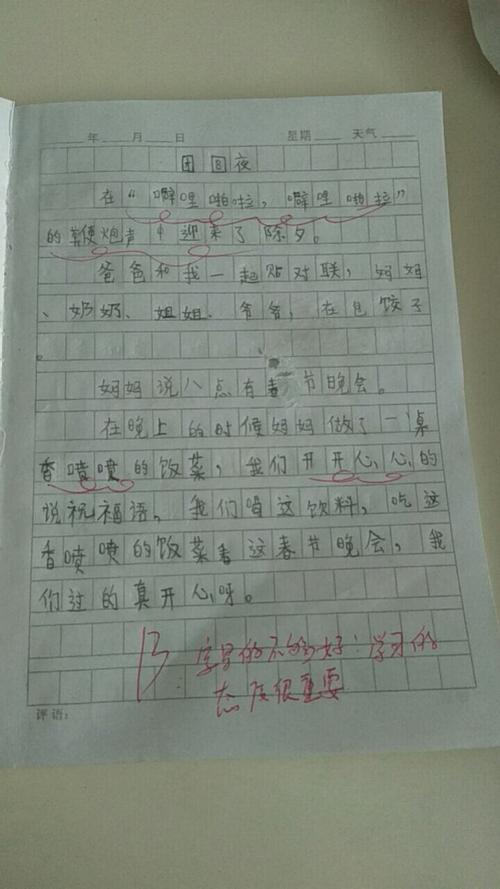 年 月 日 星期 天气
团圆夜
在“噼哩啪啦，噼哩啪啦”
的鞭炮声中迎来了除夕。
爸爸和我一起贴对联，妈妈
、奶奶、姐姐、爷爷，在包饺子
。
妈妈说八点有春节晚会。
在晚上的时候妈妈做了一桌
香喷喷的饭菜，我们开开心心的
说祝福语，我们喝这饮料，吃这
香喷喷的饭菜看这春节晚会，我
们过的真开心呀。
B 字写的不够好：学习的
态度很重要
评语：